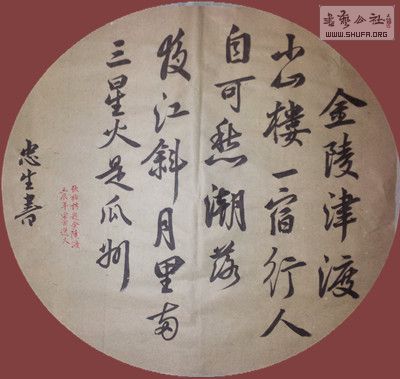 金陵津渡
小山樓一宿行人
自可愁潮落
夜江斜月里两
三星火是瓜州
忠生書
書藝公社
WWW.SHUFA.ORG